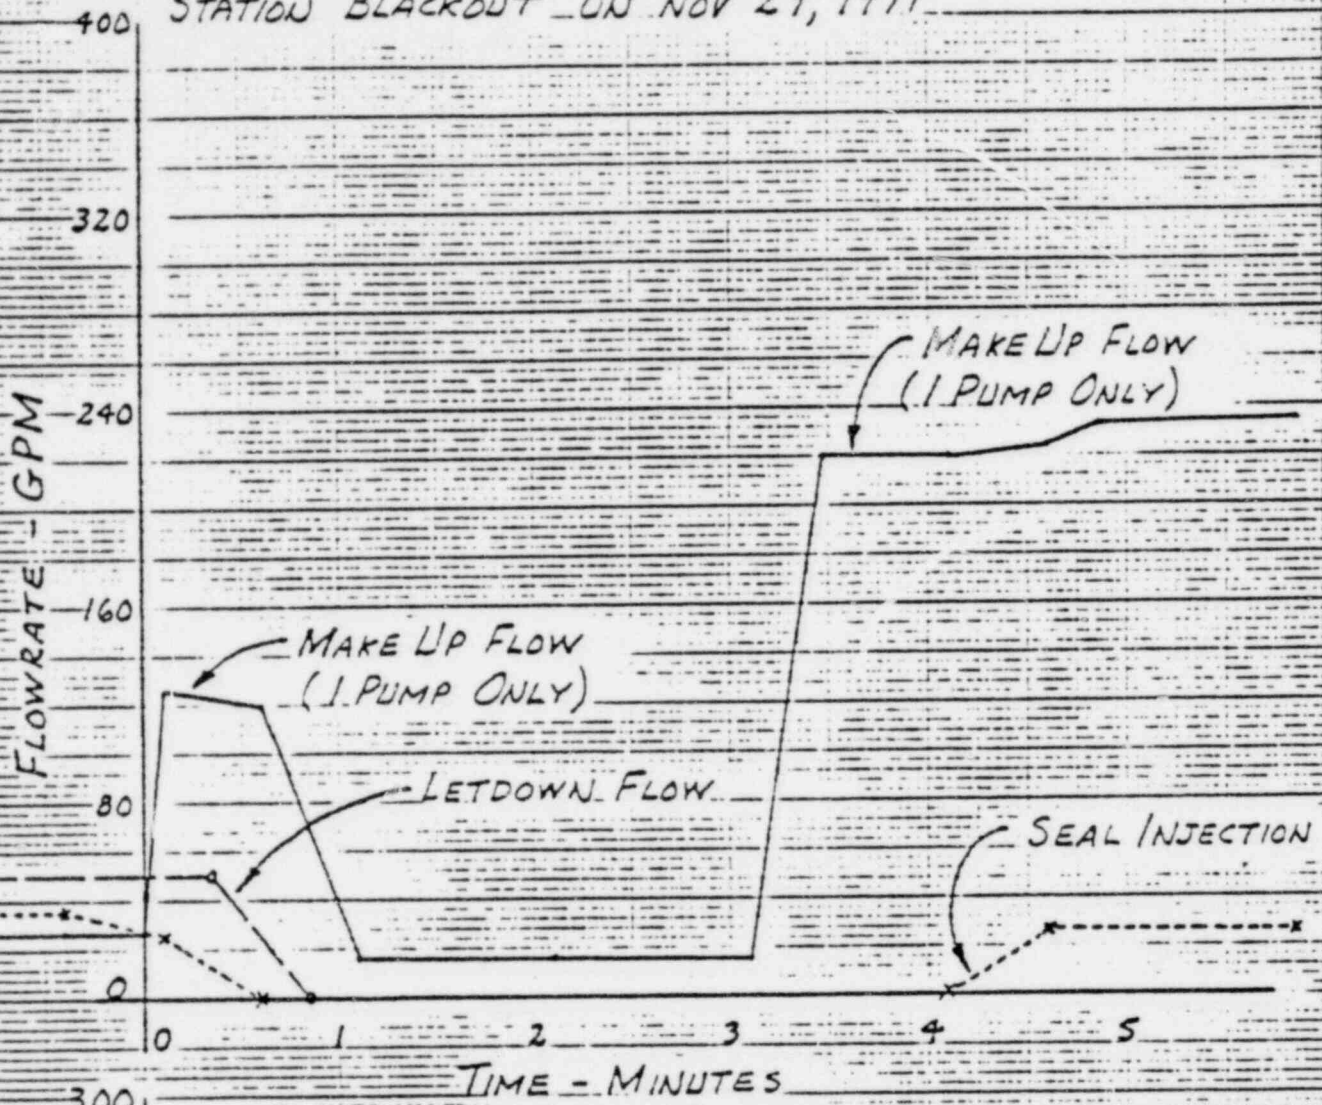 STATION BLACKOUT ON NOV 29, 1977
400
320
240
160
80
0
FLOWRATE - GPM
MAKE UP FLOW
(1 PUMP ONLY)
MAKE UP FLOW
(1 PUMP ONLY)
LETDOWN FLOW
SEAL INJECTION
0 1 2 3 4 5
TIME - MINUTES
300